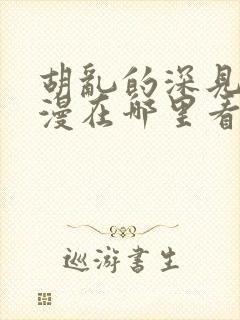 胡乱的深见
漫在哪里看
巡游书生